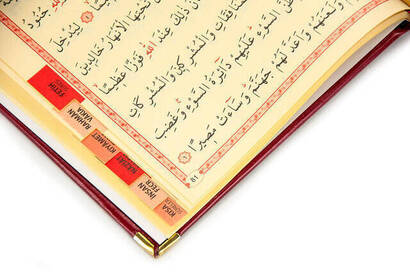 جُنُودُ
لِيُدْخِلَ
تَحْتِهَا الْأَنْهَارُ خَالِدِينَ
ذَلِكَ عِنْدَ اللّٰهِ فَوْزًا عَظِيمًا
وَالْمُنَافِقَاتِ وَالْمُشْرِكِينَ
السَّوْءِ عَلَيْهِمْ دَائِرَةُ السَّوْءِ وَغَضِبَ
وَلَعَنَهُمْ وَأَعَدَّ لَهُمْ جَهَنَّمَ وَسَاءَتْ مَصِيرًا
81
FETİH
RAHMAN
VAKIA
KIYAMET
İNSAN
FECR
KISA